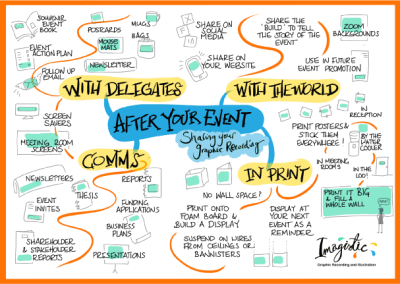 AFTER YOUR EVENT
Sharing your
Graphic Recording
WITH DELEGATES
SOUVENIR
EVENT
BOOK
POSTCARDS
MUGS
BAGS
MOUSE
MATS
EVENT
ACTION PLAN
NEWSLETTER
FOLLOW UP
EMAIL
SCREEN
SAVERS
MEETING ROOM
SCREENS
WITH THE WORLD
SHARE ON
SOCIAL
MEDIA
SHARE ON
YOUR WEBSITE
SHARE THE
'BUILD' TO TELL
THE STORY OF THE
EVENT
ZOOM
BACKGROUNDS
USE IN FUTURE
EVENT PROMOTION
COMMS
NEWSLETTERS
THESIS
REPORTS
EVENT
INVITES
FUNDING
APPLICATIONS
BUSINESS
PLANS
SHAREHOLDER
& STAKEHOLDER
REPORTS
PRESENTATIONS
IN PRINT
PRINT POSTERS &
STICK THEM
EVERYWHERE!
IN
RECEPTION
BY THE
WATER
COOLER
IN MEETING
ROOMS
IN
THE LOO!
PRINT IT BIG
& FILL A
WHOLE WALL
NO WALL SPACE?
PRINT ONTO
FOAM BOARD &
BUILD A DISPLAY
DISPLAY AT
YOUR NEXT
EVENT AS A
REMINDER
SUSPEND ON WIRES
FROM CEILINGS OR
BANNISTERS
Imagistic
Graphic Recording and Illustration